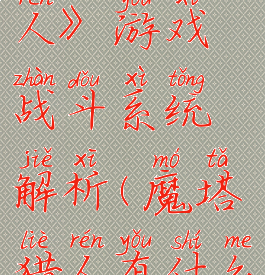 rén yóu xì
人》 游戏
zhàn dǒu xì tǒng
战斗系统
jiě xī mó tǎ
解析(魔塔
liè rén yǒu shí me
猎人有什么